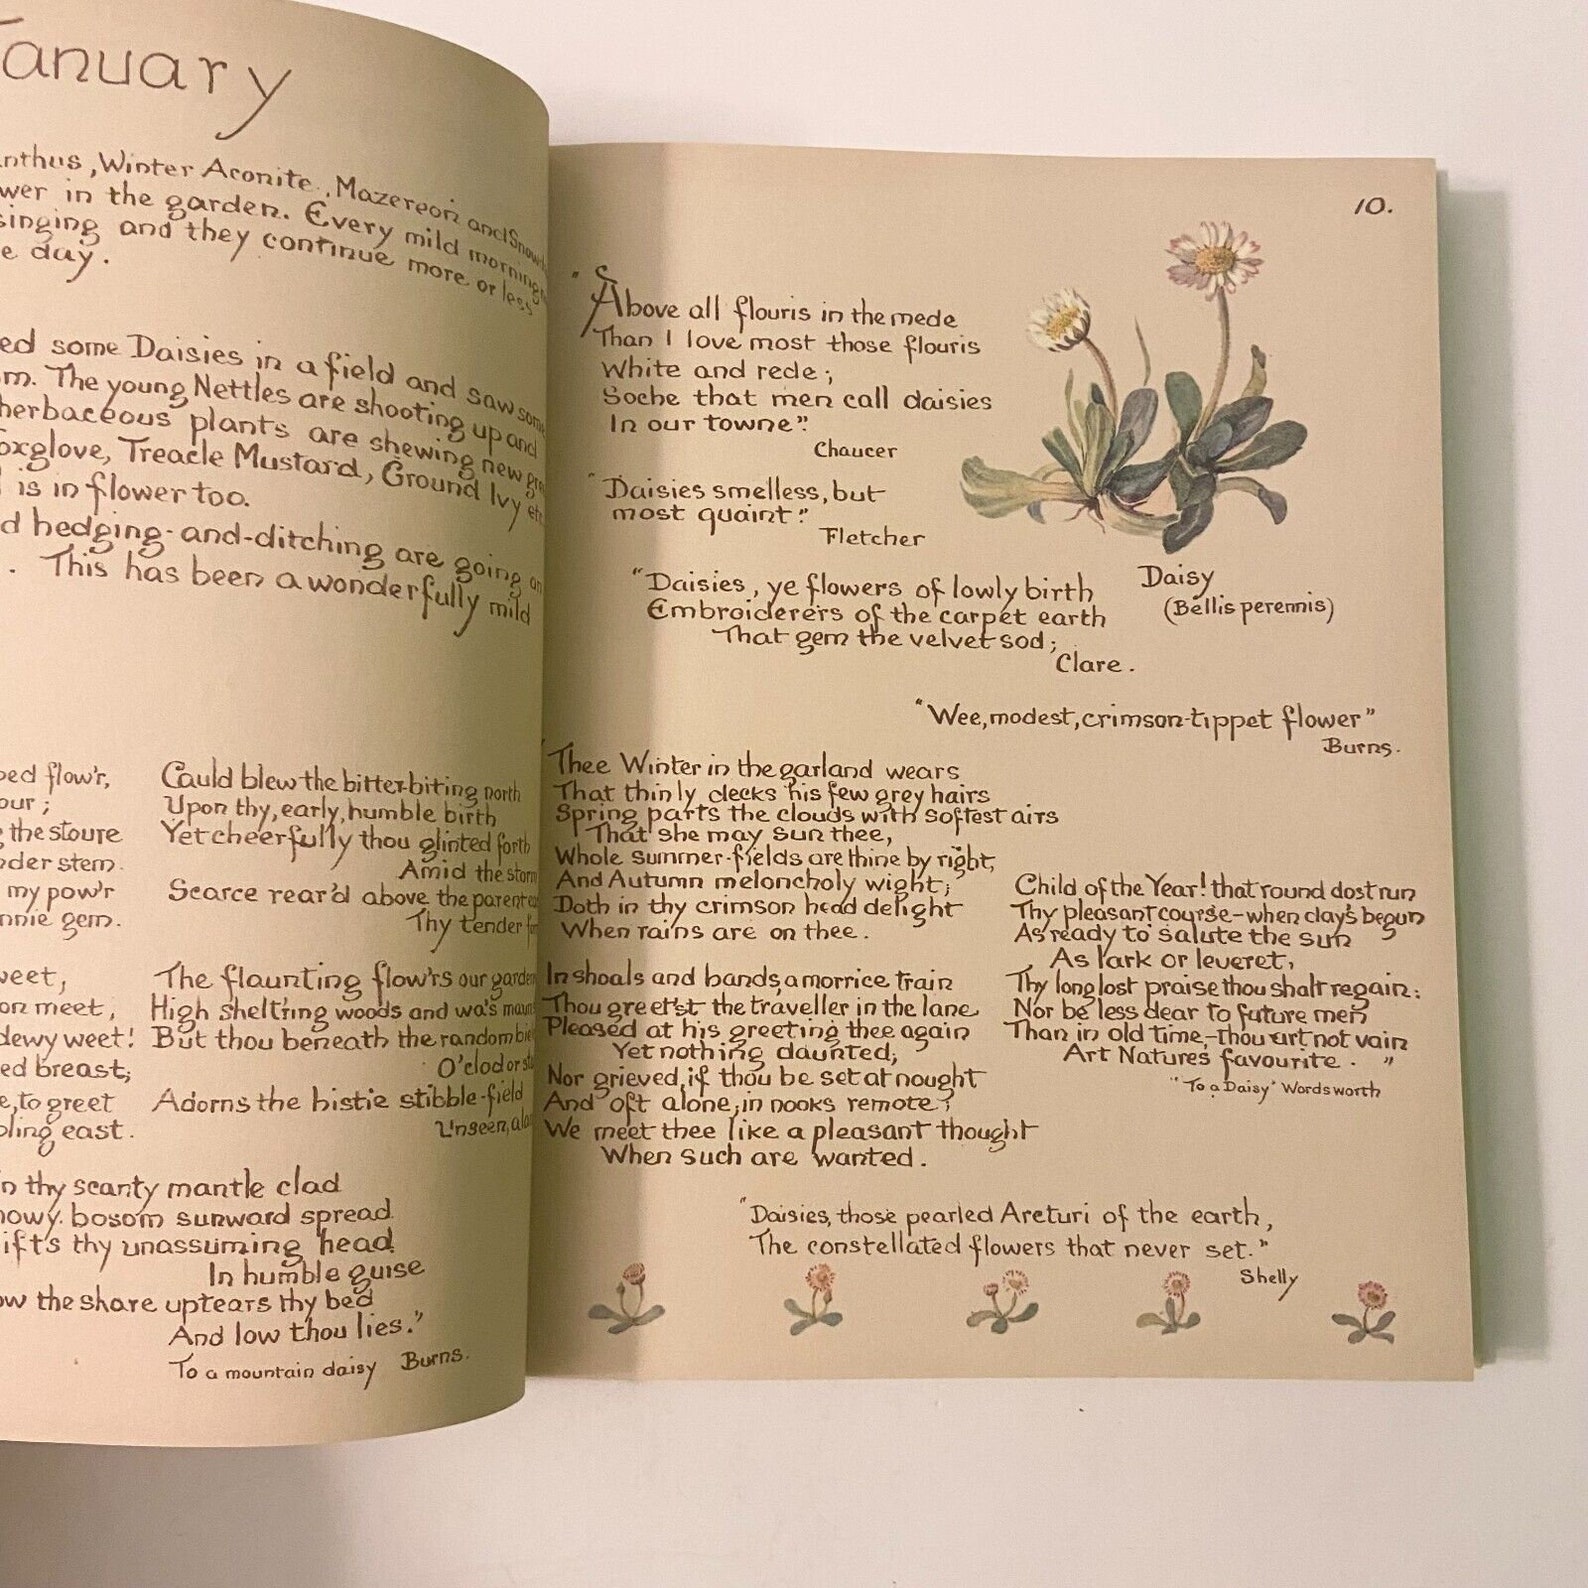 January
Winter Aconite, Mazereon and
in the garden. Every mild morning
singing and they continue more or less
day.
some Daisies in a field and saw some
The young Nettles are shooting up and
herbaceous plants are shewing new
Treacle Mustard, Ground Ivy etc
is in flower too.
hedging-and-ditching are going on
. This has been a wonderfully mild
flow'r,
the stoure
stem.
my pow'r
gem.
Cauld blew the bitter-biting north
Upon thy, early, humble birth
Yet cheerfully thou glinted forth
Amid the storm
Scarce rear'd above the parent
Thy tender
meet,
dewy weet!
breast;
to greet
east.
The flaunting flow'rs our garden
High shelt'ring woods and wa's
But thou beneath the random
O'clod or
Adorns the histie stibble-field
Unseen,
thy scanty mantle clad
bosom sunward spread
thy unassuming head
In humble guise
the share uptears thy bed
And low thou lies."
To a mountain daisy Burns.
10.
"Above all flouris in the mede
Than I love most those flouris
White and rede;
Soche that men call daisies
In our towne".
Chaucer
"Daisies smelless, but
most quaint".
Fletcher
"Daisies, ye flowers of lowly birth
Embroiderers of the carpet earth
That gem the velvet sod;
Clare.
Daisy
(Bellis perennis)
"Wee, modest, crimson-tippet flower"
Burns.
Thee Winter in the garland wears
That thinly decks his few grey hairs
Spring parts the clouds with softest airs
That she may sun thee,
Whole summer-fields are thine by right,
And Autumn meloncholy wight;
Doth in thy crimson head delight
When rains are on thee.
In shoals and bands, a morrice train
Thou greet'st the traveller in the lane
Pleased at his greeting thee again
Yet nothing daunted;
Nor grieved, if thou be set at nought
And oft alone, in nooks remote;
We meet thee like a pleasant thought
When such are wanted.
Child of the Year! that round dost run
Thy pleasant course – when day's begun
As ready to salute the sun
As lark or leveret,
Thy long lost praise thou shalt regain;
Nor be less dear to future men
Than in old time,– thou art not vain
Art Natures favourite. "
"To a Daisy" Wordsworth
"Daisies, those pearled Arcturi of the earth,
The constellated flowers that never set."
Shelly